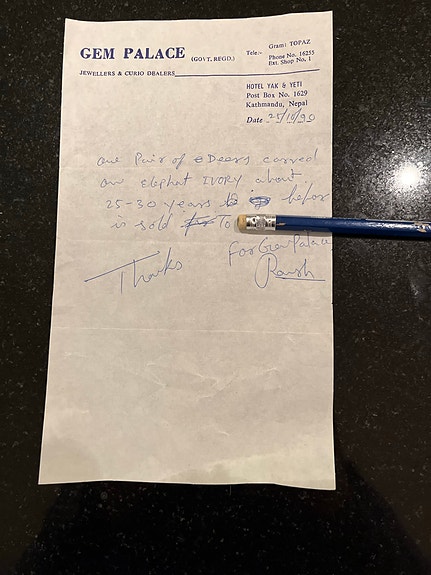 GEM PALACE (GOVT. REGD.)
JEWELLERS & CURIO DEALERS
Tele:- Gram: TOPAZ
Phone No. 16255
Ext. Shop No. 1
HOTEL YAK & YETI
Post Box No. 1629
Kathmandu, Nepal
Date 25/10/90
one Pair of Deers carved
on Elephat IVORY about
25-30 years befor
is sold To
Thanks
For Gem Palace